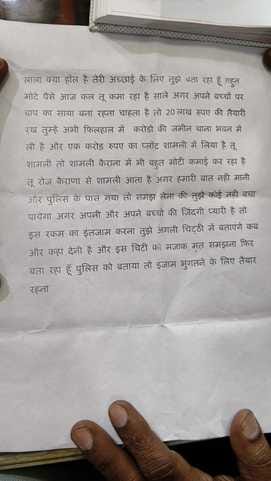 लाला क्या हाल है तेरी अच्छाई के लिए तुझे बता रहा हूं बहुत
मोटे पैसे आज कल तू कमा रहा है साले अगर अपने बच्चों पर
बाप का साया बना रहना चाहता है तो 20 लाख रुपए की तैयारी
रख तुमने अभी फिलहाल में करोड़ो की जमीन थाना भवन में
ली है और एक करोड़ रुपए का प्लॉट शामली में लिया है तू
शामली तो शामली कैराना में भी बहुत मोटी कमाई कर रहा है
तू रोज कैराना से शामली आता है अगर हमारी बात नही मानी
और पुलिस के पास गया तो समझ लेना की तुझे कोई नही बचा
पायेगा अगर अपनी और अपने बच्चो की जिंदगी प्यारी है तो
इस रकम का इंतजाम करना तुझे अगली चिट्ठी में बताएंगे कब
और कहा देनी है और इस चिटी का मजाक मत समझना फिर
बता रहा हूँ पुलिस को बताया तो इंजाम भुगतने के लिए तैयार
रहना